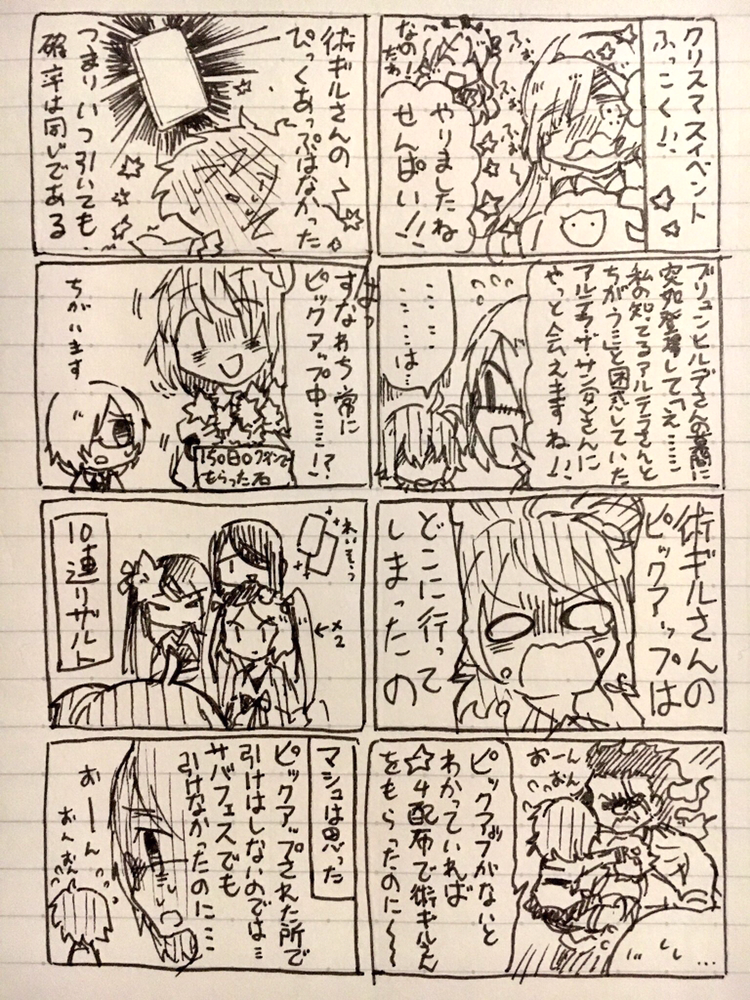 クリスマスイベント
ふっこく!!
ふぉ
ふぉ
ふぉ
やりましたね
せんぱい!!
なの!
だわ
ブリュンヒルデさんの幕間に
突如登場して「え……
私の知ってるアルテラさんと
ちがう…」と困惑していた
アルテラ・ザ・サン(タ)さんに
やっと会えますね!!
…………は…
術ギルさんの
ピックアップは
どこに行って
しまったの
おーん
おん
ピックアップがないと
わかっていれば
☆4配布で術ギルさん
をもらったのに〜〜
術ギルさんの
ぴっくあっぷはなかった
つまりいつ引いても
確率は同じである
はっ
すなわち常に
ピックアップ中……!?
150日ログインで
もらった石
ちがいます
れいそう
←×2
10連リザルト
マシュは思った
ピックアップされた所で
引けはしないのでは…
サバフェスでも
引けなかったのに…
おーーん
おんおん